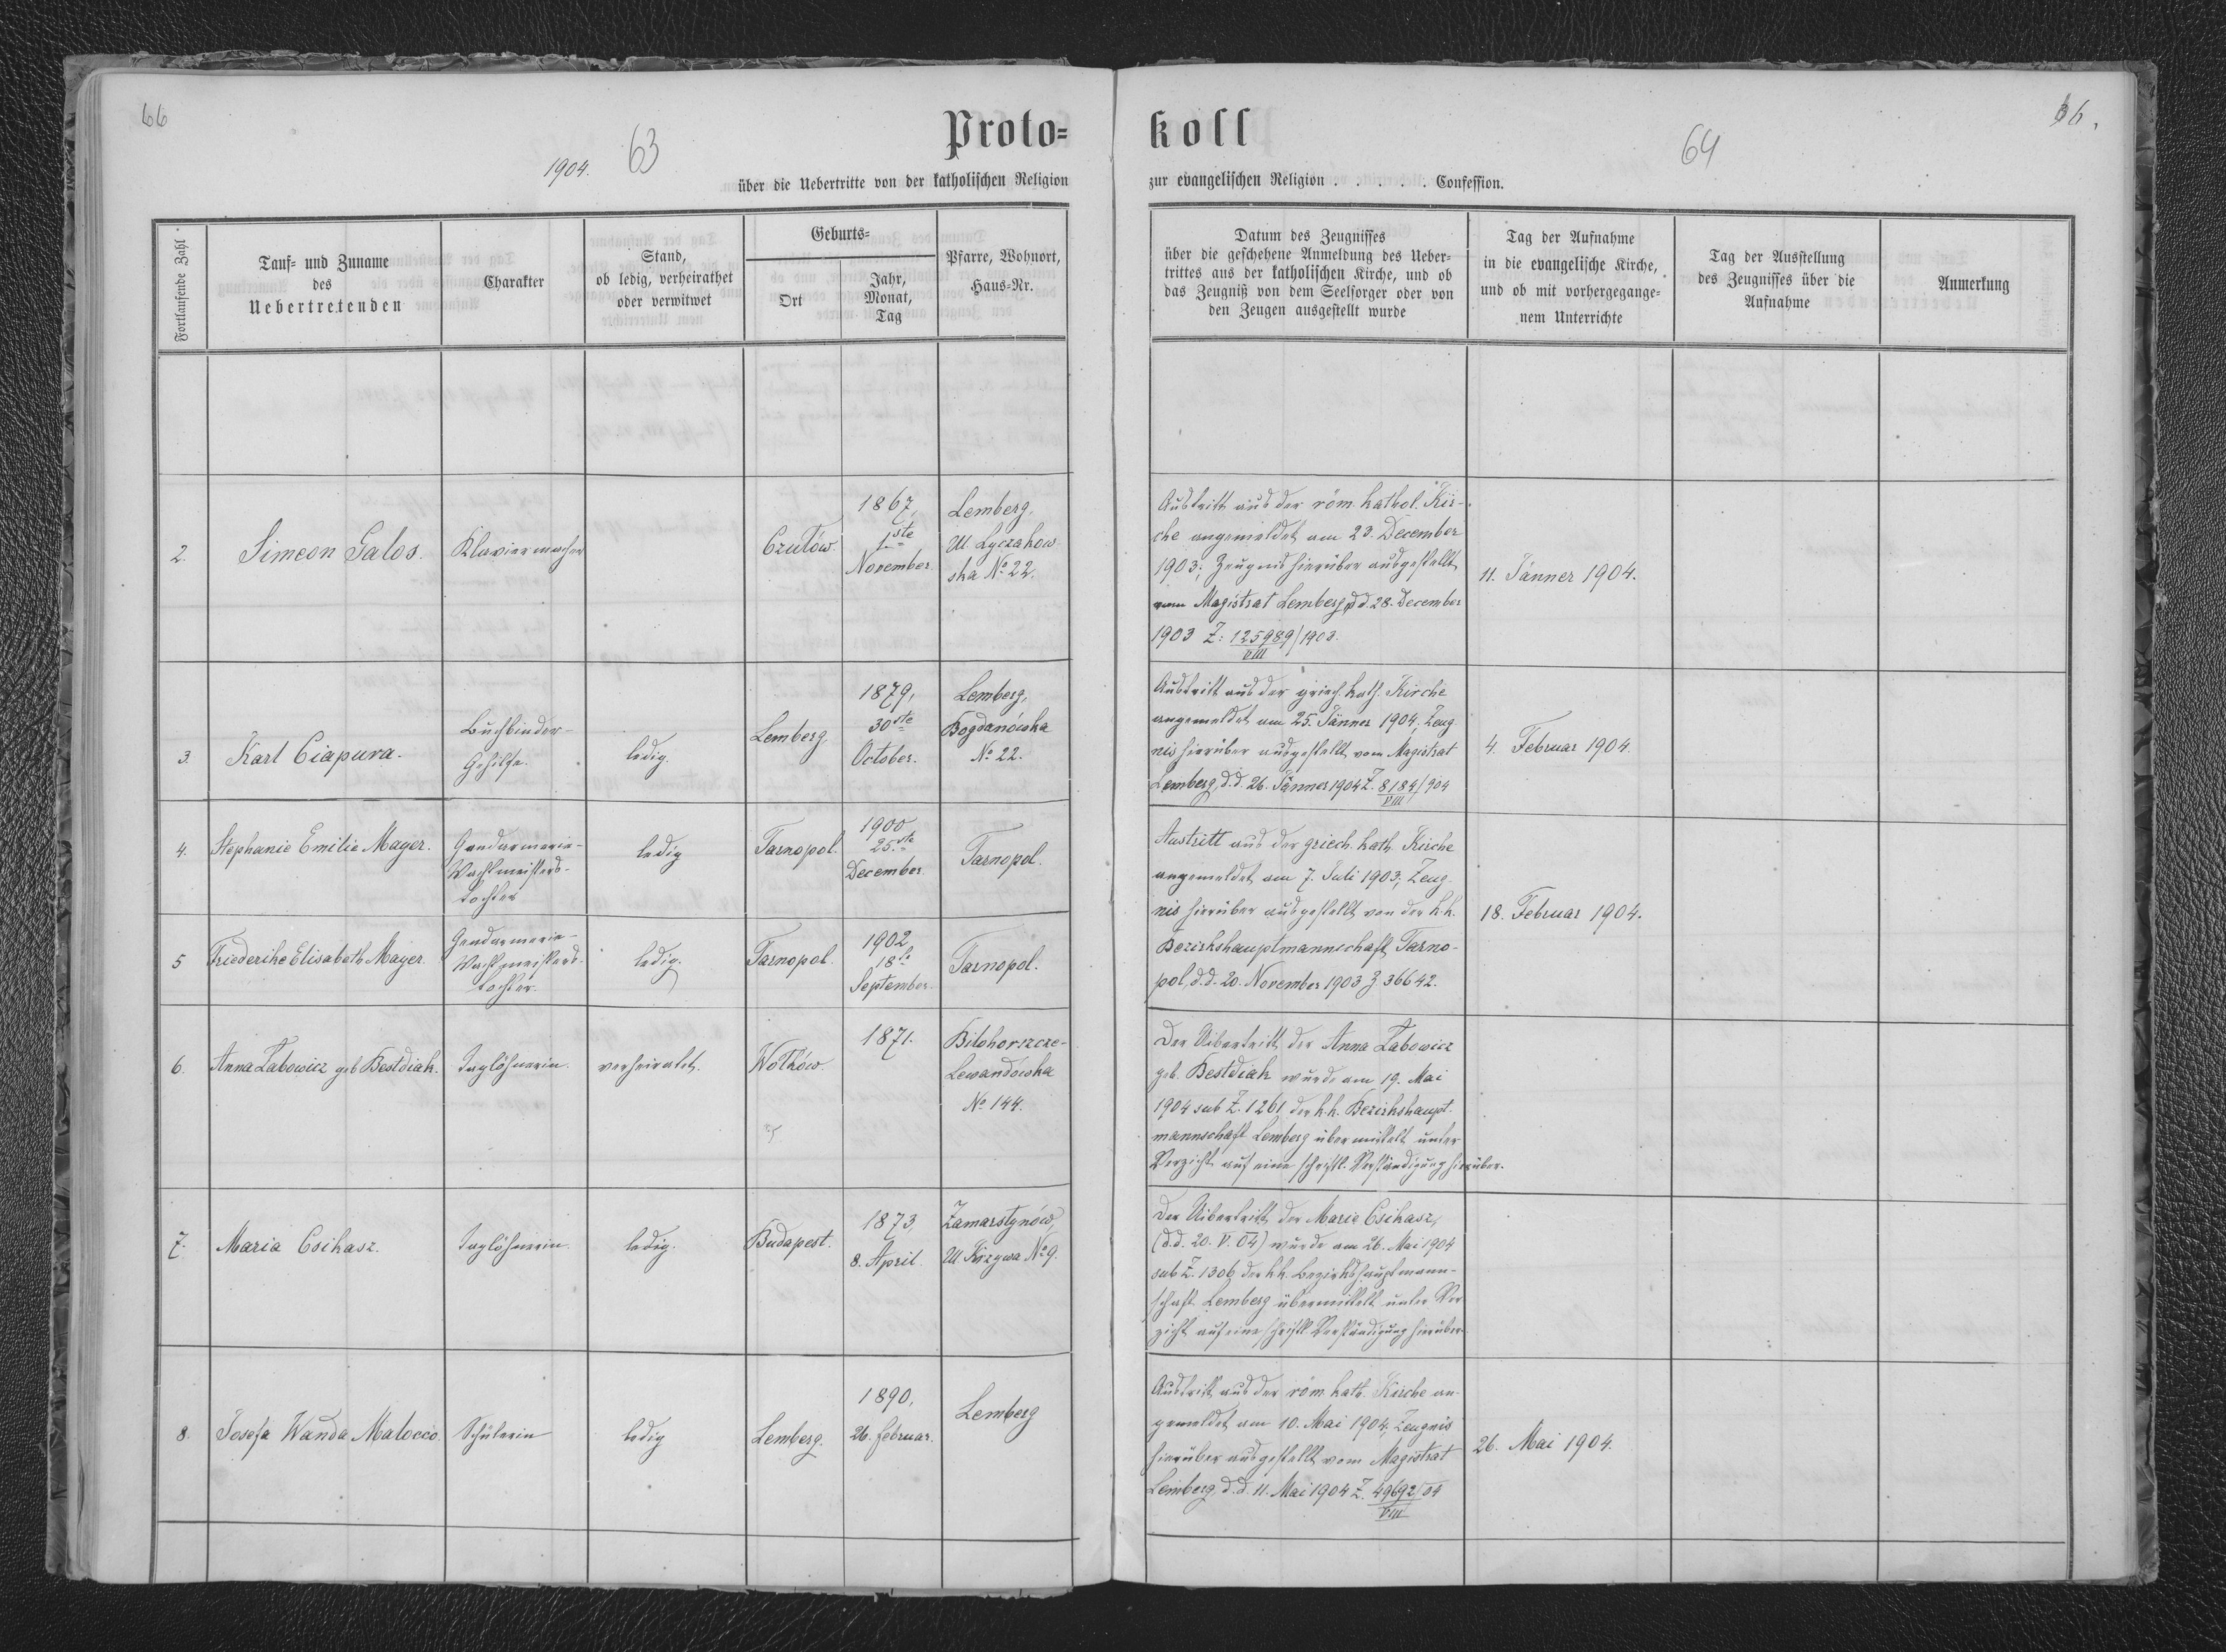 66
1904.
63
Proto=
über die Uebertritte von der katholischen Religion
koll
64
66.
zur evangelischen Religion . . . . . Confession.
Fortlaufende Zahl
Tauf= und Zuname
des
Uebertretenden
Charakter
Stand,
ob ledig, verheirathet
oder verwitwet
Geburts=
Ort
Jahr,
Monat,
Tag
Pfarre, Wohnort,
Haus=Nr.
Datum des Zeugnisses
über die geschehene Anmeldung des Ueber=
trittes aus der katholischen Kirche, und ob
das Zeugniß von dem Seelsorger oder von
den Zeugen ausgestellt wurde
Tag der Aufnahme
in die evangelische Kirche,
und ob mit vorhergegange=
nem Unterrichte
Tag der Ausstellung
des Zeugnisses über die
Aufnahme
Anmerkung
2.
Simeon Galos.
Klaviermacher
Czułów.
1867,
1ste
November
Lemberg,
Ul. Łyczakow
ska No 22.
Austritt aus der röm. kathol. Kir-
che angemeldet am 23. December
1903; Zeugnis hierüber ausgestellt
vom Magistrat Lemberg d.d. 28. December
1903 Z: 125989/1903.
VIII
11. Jänner 1904.
3.
Karl Ciapura.
Buchbinder-
Gehilfe.
ledig.
Lemberg.
1879,
30ste
October.
Lemberg,
Bogdanówka
No 22.
Austritt aus der griech. kath. Kirche
angemeldet am 25. Jänner 1904; Zeug
nis hierüber ausgestellt vom Magistrat
Lemberg, d.d. 26. Jänner 1904 Z. 8184/904
VIII
4. Februar 1904.
4.
Stephanie Emilie Mayer.
Gendarmerie-
Wachtmeisters-
tochter
ledig
Tarnopol.
1900
25.ste
December
Tarnopol.
Austritt aus der griech. kath. Kirche
angemeldet am 7. Juli 1903; Zeug-
nis hierüber ausgestellt von der k.k.
Bezirkshauptmannschaft Tarno-
pol, d.d. 20. November 1903 Z. 36642.
18. Februar 1904.
5
Friederike Elisabeth Mayer.
Gendarmerie-
Wachtmeisters-
tochter.
ledig.
Tarnopol
1902
18te
September.
Tarnopol.
6.
Anna Łabowicz geb Bestdiak.
Taglöhnerin.
verheiratet.
Wołków.
1871.
Biłohorszcze-
Lewandówka
No 144.
Der Uibertritt der Anna Łabowicz
geb. Bestdiak wurde am 19. Mai
1904 sub Z. 1261 der k.k. Bezirkshaupt-
mannschaft Lemberg übermittelt unter
Verzicht auf eine schriftl. Verständigung hierüber.
7.
Maria Csikasz.
Taglöhnerin.
ledig.
Budapest.
1873,
8. April.
Zamarstynów,
Ul. Krzywa No 9.
Der Uibertritt der Marie Csikasz,
(d.d. 20. V. 04) wurde am 26. Mai 1904
sub Z. 1306 der k.k. Bezirkshauptmann-
schaft Lemberg übermittelt unter Ver
zicht auf eine schriftl. Verständigung hierüber.
8.
Josefa Wanda Malocco.
Schülerin
ledig
Lemberg.
1890,
26. Februar.
Lemberg
Austritt aus der röm. kath. Kirche an-
gemeldet am 10. Mai 1904; Zeugnis
hierüber ausgestellt vom Magistrat
Lemberg, d.d. 11. Mai 1904 Z. 49692/04
VIII
26. Mai 1904.